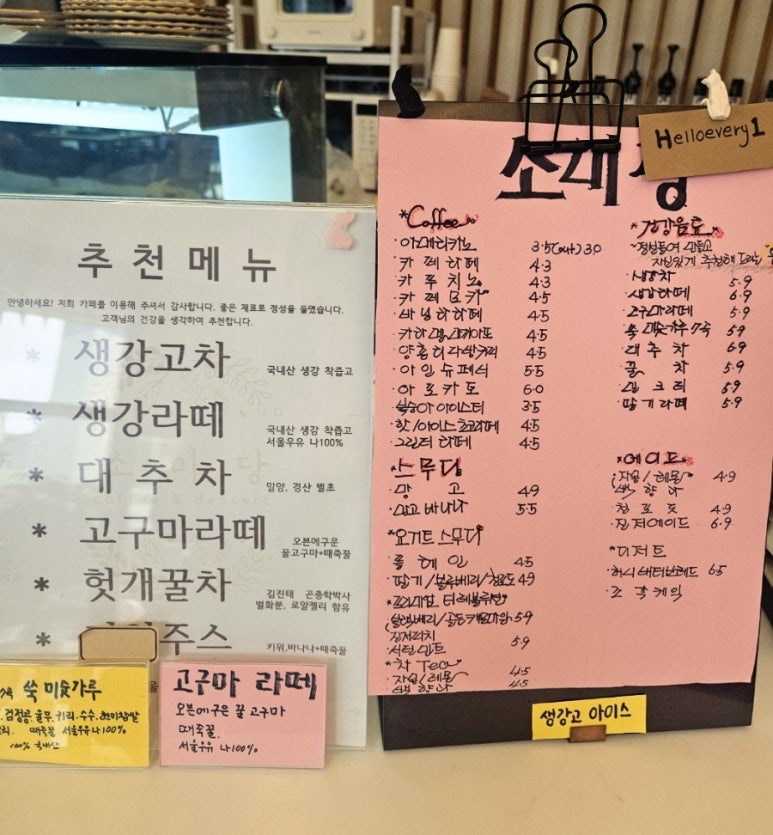 추천메뉴
안녕하세요! 저희 카페를 이용해 주셔서 감사합니다. 좋은 재료로 정성을 들였습니다.
고객님의 건강을 생각하며 추천합니다.
* 생강고차 국내산 생강 착즙고
* 생강라떼 국내산 생강 착즙고
서울우유 나100%
* 대추차 밀양, 경산 별초
* 고구마라떼 오븐에구운
꿀고구마+때죽꿀
* 헛개꿀차 김진태 곤충학박사
벌화분, 로얄젤리 함유
* 주스 키위,바나나+때죽꿀
쑥 미숫가루
검정콩, 율무, 귀리, 수수, 현미찹쌀
때죽꿀 서울우유 나100%
100% 국내산
고구마 라떼
오븐에 구은 꿀 고구마
때죽꿀.
서울우유 나100%
Helloevery1
소래
*Coffee
·아메리카노 3.5(out)3.0
·카페라떼 4.3
·카푸치노 4.3
·카페모카 4.5
·바닐라라떼 4.5
·카라멜마키아토 4.5
4.5
·아인슈페너 5.5
·아포카토 6.0
·복숭아 아이스티 3.5
·핫/아이스 초코라떼 4.5
·그린티 라떼 4.5
*스무디
·망고 4.9
·망고 바나나 5.5
*요거트 스무디
·플레인 4.5
·딸기/블루베리/청포도 4.9
*프리미엄 티
5.9
5.9
*차 Tea
·자몽/레몬 4.5
4.5
*건강음료
·생강차 5.9
·생강라떼 6.9
·고구마라떼 5.9
·쑥 미숫가루 5.9
·대추차 6.9
·꿀차 5.9
5.9
·딸기라떼 5.9
*에이드
·자몽/레몬 4.9
·청포도 4.9
·진저에이드 6.9
*디저트
·허니버터브레드 6.5
·조각케익
생강고 아이스